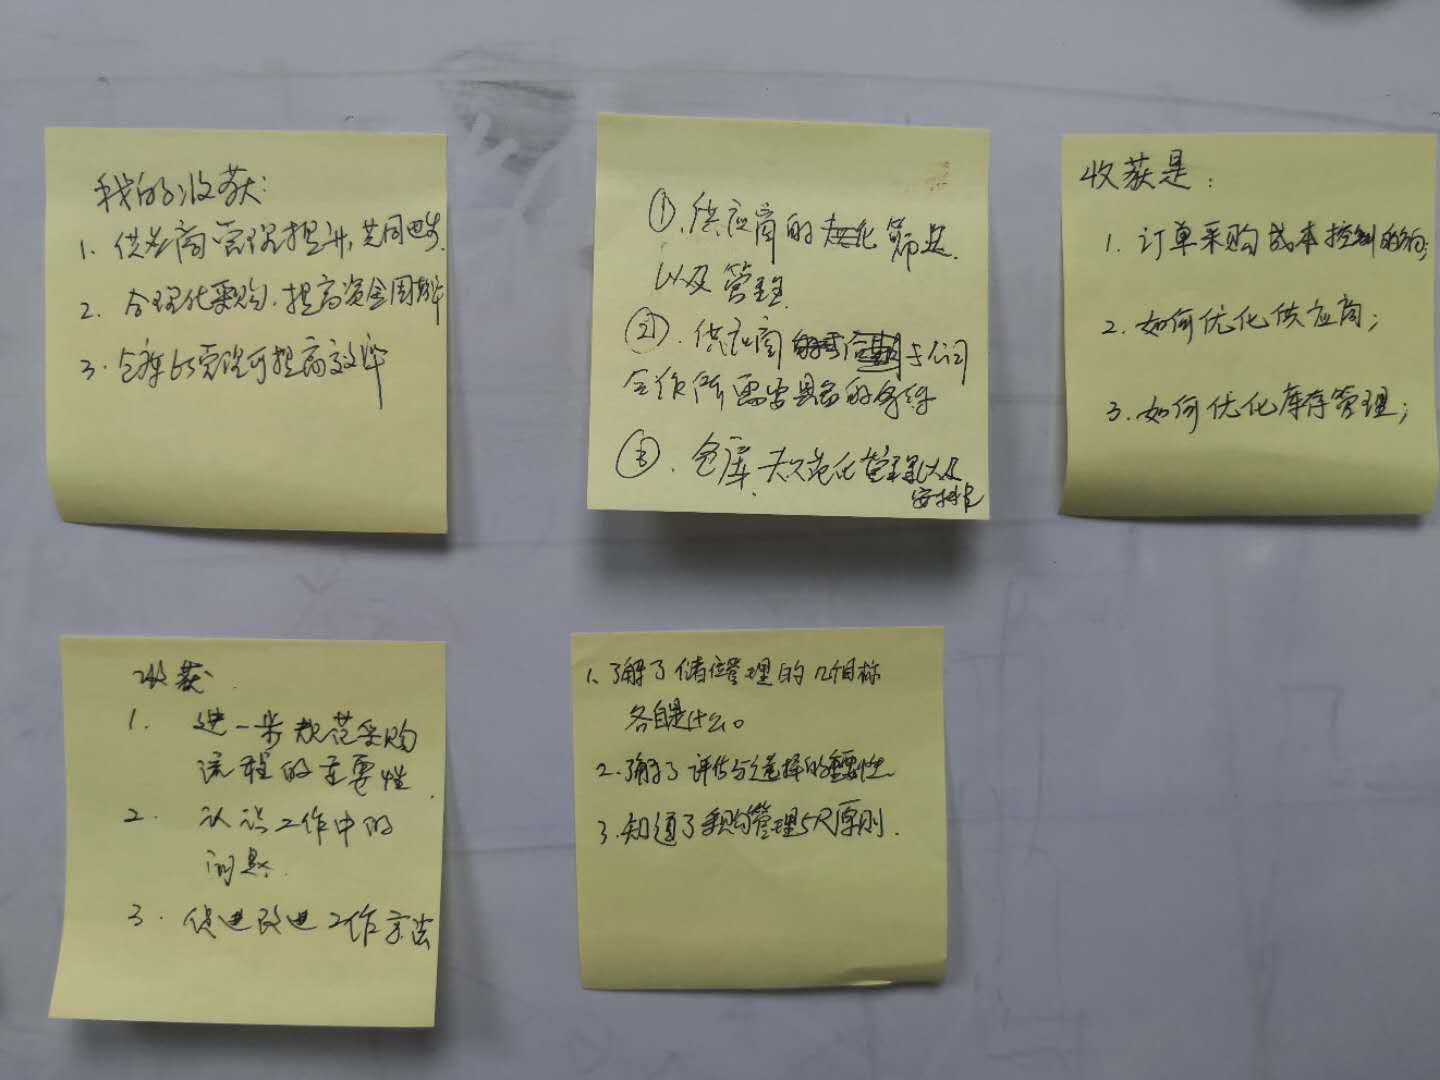 我的收获:
1. 供应商管理提升,共同进步.
2. 合理化采购.提高资金周转率
3. 仓库的管理可提高效率
①.供应商的筛选
以及管理.
②.供应商与公司
合作所需要具备的条件
③.仓库规范化管理以及
安排
收获是:
1. 订单采购成本控制的;
2.如何优化供应商;
3.如何优化库存管理;
收获.
1. 进一步规范采购
流程的重要性.
2. 认识工作中的
问题.
3. 促进改进工作方法
1. 了解了储位管理的几个目标
各自是什么。
2.了解了评估与选择的重要性
3.知道了采购管理5R原则.